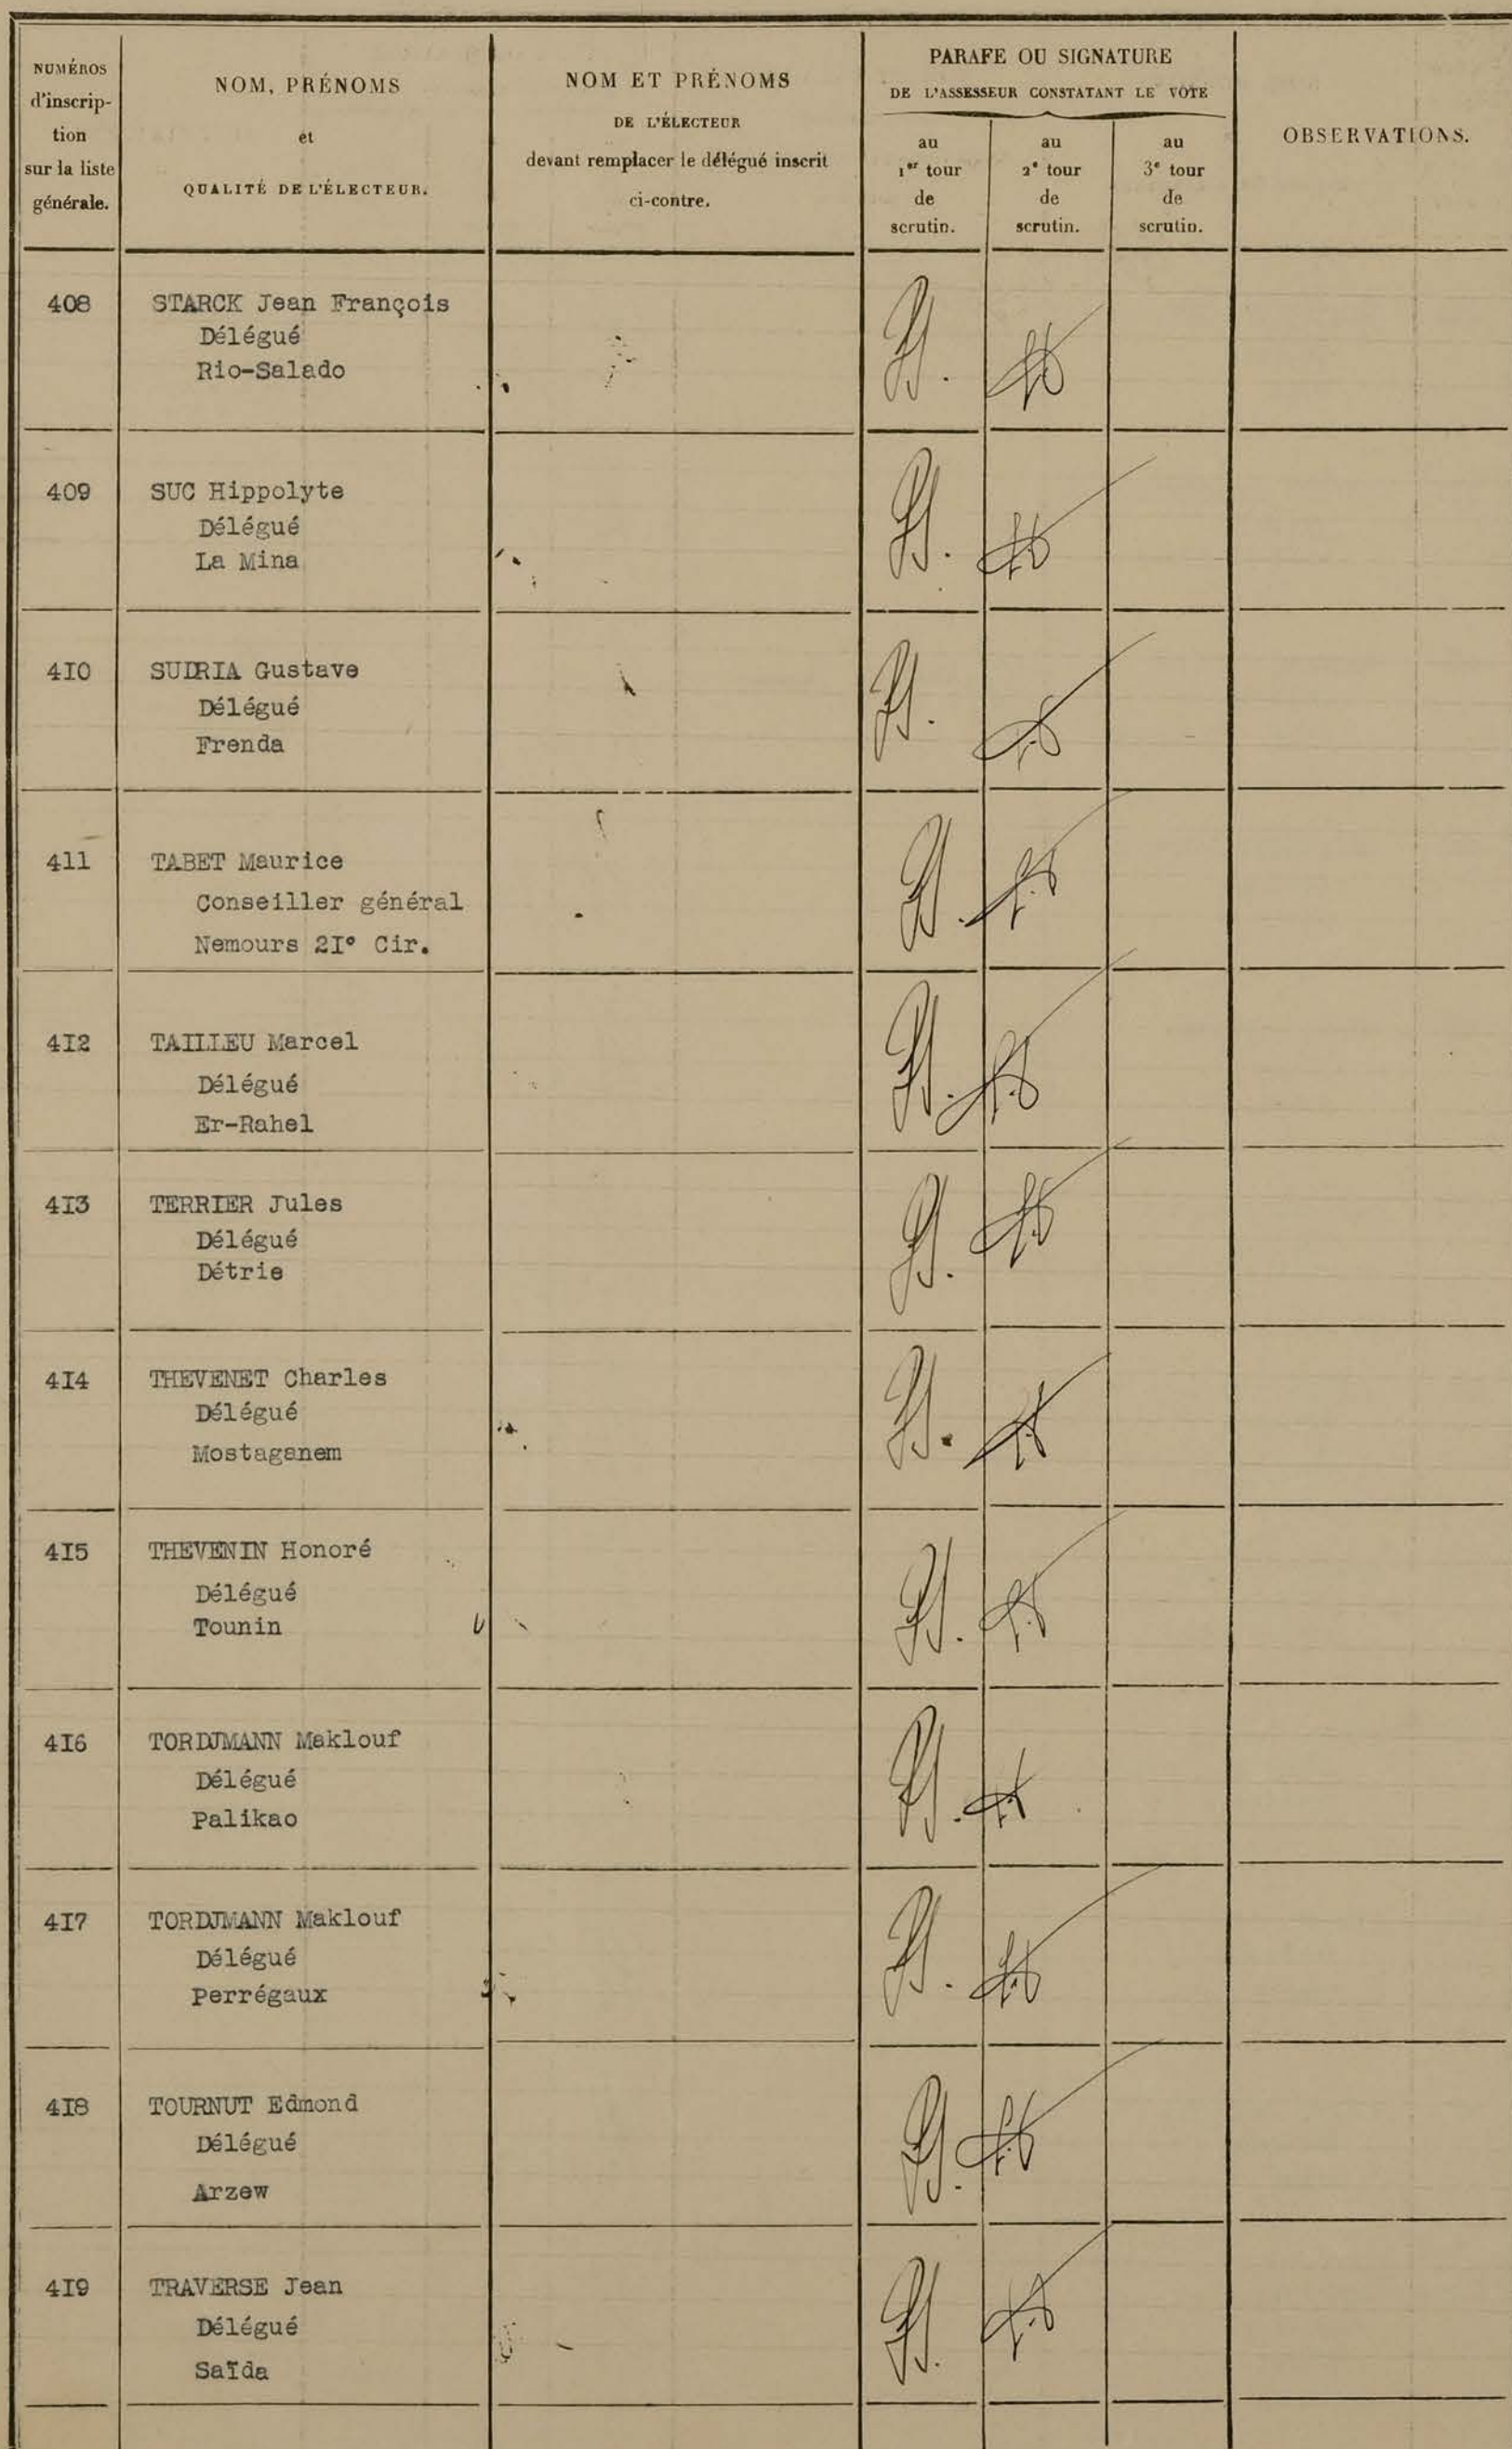 NUMÉROS
d'inscrip-
tion
sur la liste
générale.
NOM, PRÉNOMS
et
QUALITÉ DE L'ÉLECTEUR.
NOM ET PRÉNOMS
DE L'ÉLECTEUR
devant remplacer le délégué inscrit
ci-contre.
PARAFE OU SIGNATURE
DE L'ASSESSEUR CONSTATANT LE VOTE
au
1er tour
de
scrutin.
au
2e tour
de
scrutin.
au
3e tour
de
scrutin.
OBSERVATIONS.
408 STARCK Jean François
Délégué
Rio-Salado
409 SUC Hippolyte
Délégué
La Mina
4I0 SUIRIA Gustave
Délégué
Frenda
411 TABET Maurice
Conseiller général
Nemours 2I° Cir.
4I2 TAILLEU Marcel
Délégué
Er-Rahel
4I3 TERRIER Jules
Délégué
Détrie
4I4 THEVENET Charles
Délégué
Mostaganem
4I5 THEVENIN Honoré
Délégué
Tounin
4I6 TORDJMANN Maklouf
Délégué
Palikao
4I7 TORDJMANN Maklouf
Délégué
Perrégaux
4I8 TOURNUT Edmond
Délégué
Arzew
4I9 TRAVERSE Jean
Délégué
Saïda